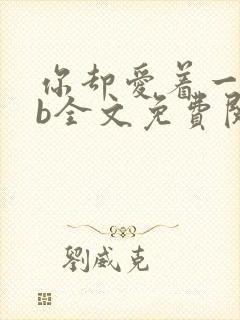 你却爱着一
b全文免費閱
劉威克